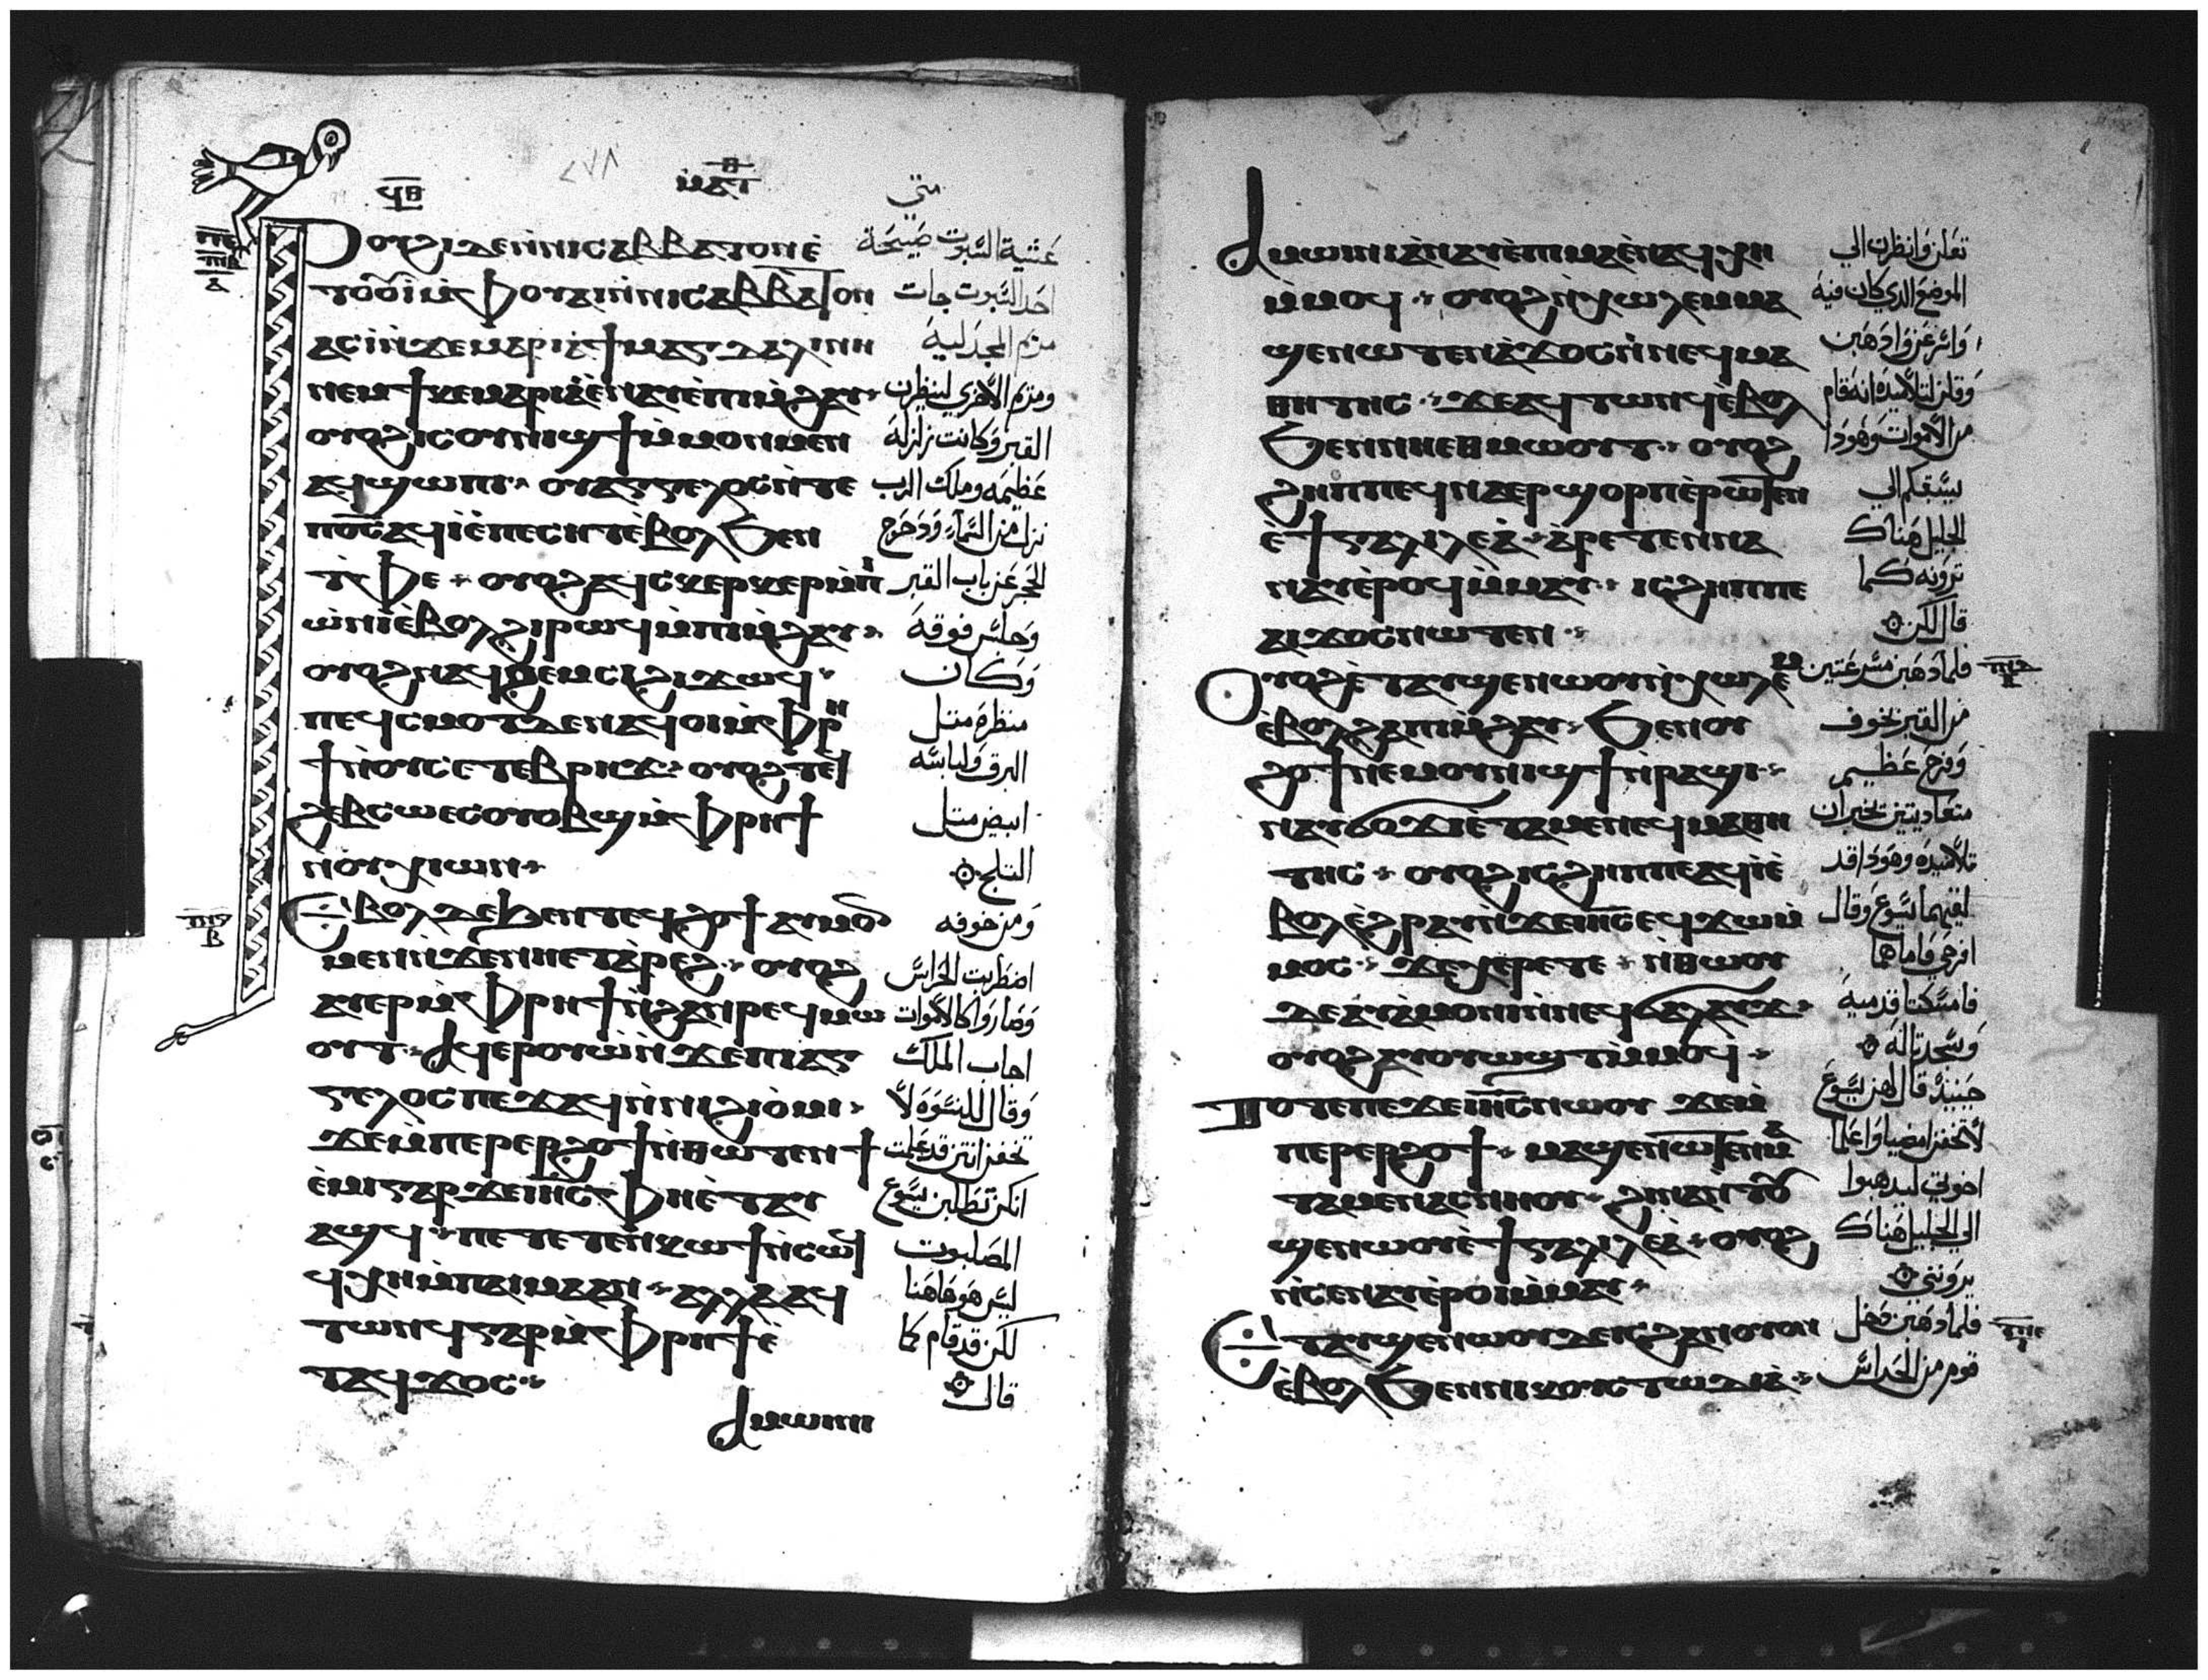 ϥⲑ
ⲙⲁⲧⲑ
متي
Ⲣⲟⲩϩⲓ ⲇⲉ ⲛ̀ⲛⲓⲥⲁⲃⲃⲁⲧⲟⲛ ⲉ̀
ⲧⲟⲟⲩⲓ ⲙ̀ⲫⲟⲩⲁⲓ ⲛ̀ⲛⲓⲥⲁⲃⲃⲁⲧⲟⲛ
ⲁⲥⲓ̀ ⲛ̀ϫⲉ ⲙⲁⲣⲓⲁ ϯⲙⲁⲅⲇⲁⲗⲓⲛⲏ
ⲛⲉⲙ ϯⲕⲉⲙⲁⲣⲓⲁ ⲉ̀ⲛⲁⲩ ⲉ̀ⲡⲓⲙ̀ϩⲁⲩ
ⲟⲩⲟϩ ⲓⲥ ⲟⲩⲛⲓϣϯ ⲙ̀ⲙⲟⲛⲙⲉⲛ
ⲁϥϣⲱⲡⲓ ⲟⲩⲁⲅⲅⲉⲗⲟⲥ ⲛ̀ⲧⲉ
ⲡⲟ̅ⲥ̅ ⲁϥⲓ̀ ⲉ̀ⲡⲉⲥⲏⲧ ⲉ̀ⲃⲟⲗ ϧⲉⲛ
ⲧ̀ⲫⲉ ⲟⲩⲟϩ ⲁϥⲥⲕⲉⲣⲕⲉⲣ ⲙ̀ⲡⲓ
ⲱ̀ⲛⲓ ⲉ̀ⲃⲟⲗ ϩⲓⲣⲱϥ ⲙ̀ⲡⲓⲙ̀ϩⲁⲩ
ⲟⲩⲟϩ ⲛⲁϥϩⲉⲙⲥⲓ ϩⲓϫⲱϥ
ⲡⲉϥⲥⲙⲟⲧ ⲇⲉ ⲛⲁϥⲟⲓ ⲙ̀ⲫⲣⲏ
ϯ ⲛ̀ⲟⲩⲥⲉⲧⲉⲃⲣⲏϫ ⲟⲩⲟϩ ⲧⲉϥ
ϩⲉⲃⲥⲱ ⲉⲥⲟⲩⲟⲃϣ ⲙ̀ⲫⲣⲏϯ
ⲛ̀ⲟⲩⲭⲓⲱⲛ
Ⲉⲃⲟⲗ ⲇⲉ ϧⲉⲛ ⲧⲉϥϩⲟϯ ⲁⲩⲙⲟⲛ
ⲙⲉⲛ ⲛ̀ϫⲉ ⲛⲏⲉⲧⲁ̀ⲣⲉϩ ⲟⲩⲟϩ
ⲁⲩⲉⲣ ⲙ̀ⲫⲣⲏϯ ⲛ̀ϩⲁⲛⲣⲉϥⲙⲱ
ⲟⲩⲧ Ⲁϥⲉⲣⲟⲩⲱ̀ ⲛ̀ϫⲉ ⲡⲓⲁⲅ
ⲅⲉⲗⲟⲥ ⲡⲉϫⲁϥ ⲛ̀ⲛⲓϩⲓⲟ̀ⲙⲓ
ϫⲉ ⲙ̀ⲡⲉⲣⲉⲣϩⲟϯ ⲛ̀ⲑⲱⲧⲉⲛ ϯ
ⲉ̀ⲙⲓ ⲅⲁⲣ ϫⲉ ⲓⲏ̅ⲥ̅ ⲫⲏⲉ̀ⲧⲁⲩ
ⲁϣϥ ⲡⲉⲧⲉⲧⲉⲛⲕⲱϯ ⲛ̀ⲥⲱϥ
ϥⲭⲏ ⲙ̀ⲡⲁⲓⲙⲁ ⲁⲛ ⲁⲗⲗⲁ ⲁϥ
ⲧⲱⲛϥ ⲅⲁⲣ ⲙ̀ⲫⲣⲏϯ ⲉ̀
ⲧⲁϥϫⲟⲥ
Ⲁⲙⲱⲓⲛⲓ
عشية السبوت صبيحة
احد السبوت جات
مريم المجدلية
ومريم الاخري لينظرن
القبر وكانت زلزلة
عظيمه وملك الرب
نزل من السماء ودحرج
الحجر عن باب القبر
وجلس فوقه
وكان
منظره متل
البرق ولباسه
ابيض متل
التلج
ومن خوفه
اضطربت الحراس
وصاروا كالاموات
اجاب الملك
وقال للنسوه لا
تخفن انتن قد علمت
انكن تطلبن يسوع
المصلوب
ليس هو هاهنا
لكن قد قام كما
قال
Ⲁⲙⲱⲓⲛⲓ ⲁ̀ⲛⲁⲩ ⲉ̀ⲡⲓⲙⲁ ⲉ̀ⲛⲁϥⲭⲏ
ⲙ̀ⲙⲟϥ ⲟⲩⲟϩ ⲛ̀ⲭⲱⲗⲉⲙ ⲙⲁ
ϣⲉⲛⲱⲧⲉⲛ ⲁ̀ϫⲟⲥ ⲛ̀ⲛⲉϥⲙⲁ
ⲑⲏⲧⲏⲥ ϫⲉ ⲁϥⲧⲱⲛϥ ⲉ̀ⲃⲟⲗ
ϧⲉⲛ ⲛⲏⲉⲑⲙⲱⲟⲩⲧ ⲟⲩⲟϩ
ϩⲏⲡⲡⲉ ϥⲛⲁⲉⲣϣⲟⲣⲡ ⲉ̀ⲣⲱⲧⲉⲛ
ⲉ̀ϯⲅⲁⲗⲓⲗⲉⲁ̀ ⲁ̀ⲣⲉⲧⲉⲛⲛⲁ
ⲛⲁⲩ ⲉ̀ⲣⲟϥ ⲙ̀ⲙⲁⲩ ⲓⲥϩⲏⲡⲡⲉ
ⲁⲓϫⲟⲥ ⲛⲱⲧⲉⲛ
Ⲟⲩⲟϩ ⲉ̀ⲧⲁⲩϣⲉⲛⲱⲟⲩ ⲛ̀ⲭⲱⲗⲉⲙ
ⲉ̀ⲃⲟⲗ ϩⲁ ⲡⲓⲙ̀ϩⲁⲩ ϧⲉⲛ ⲟⲩ
ϩⲟϯ ⲛⲉⲙ ⲟⲩⲛⲓϣϯ ⲛ̀ⲣⲁϣⲓ
ⲛⲁⲩϭⲟϫⲓ ⲉ̀ⲧⲁⲙⲉ ⲛⲉϥⲙⲁⲑⲏ
ⲧⲏⲥ ⲟⲩⲟϩ ⲓⲥϩⲏⲡⲡⲉ ⲁϥⲓ̀ ⲉ̀
ⲃⲟⲗ ⲉ̀ϩⲣⲁⲩ ⲛ̀ϫⲉ ⲓⲏ̅ⲥ̅ ⲉϥϫⲱ ⲙ̀
ⲙⲟⲥ ϫⲉ ⲭⲉⲣⲉⲧⲉ ⲛ̀ⲑⲱⲟⲩ
ⲇⲉ ⲁⲩⲁ̀ⲙⲟⲛⲓ ⲛ̀ⲛⲉϥϭⲁⲗⲁⲩϫ
ⲟⲩⲟϩ ⲁⲩⲟⲩⲱϣⲧ ⲙ̀ⲙⲟϥ
Ⲧⲟⲧⲉ ⲡⲉϫⲉ ⲓⲏ̅ⲥ̅ ⲛⲱⲟⲩ ϫⲉ ⲙ̀
ⲡⲉⲣⲉⲣϩⲟϯ ⲙⲁϣⲉⲛⲱⲧⲉⲛ ⲙⲁ
ⲧⲁⲙⲉ ⲛⲁⲥⲛⲏⲟⲩ ϩⲓⲛⲁ ⲛ̀ⲧⲟⲩ
ϣⲉⲛⲱⲟⲩ ⲉ̀ϯⲅⲁⲗⲓⲗⲉⲁ̀ ⲟⲩⲟϩ
ⲛ̀ⲥⲉⲛⲁⲩ ⲉ̀ⲣⲟⲓ ⲙ̀ⲙⲁⲩ
Ⲉⲧⲁⲩϣⲉⲛⲱⲟⲩ ⲇⲉ ⲓⲥ ϩⲁⲛⲟⲩⲟⲛ
ⲉ̀ⲃⲟⲗ ϧⲉⲛ ⲛⲓⲕⲟⲩⲥⲧⲱⲇⲓⲁ̀
تعالن وانظرن الي
الموضع الدي كان فيه
واسرعن وادهبن
وقلن لتلاميده انه قام
من الاموات وهودا
يسبقكم الي
الجليل هناك
ترونه كما
قال لكن
فلما دهبن مسرعتين
من القبر بخوف
وفرح عظيم
متعاديتين تخبران
تلاميده وهودا قد
لقيهما يسوع وقال
افرحي فاماهما
فامسكتا قدميه
وسجدتا له
حينيد قال لهن يسوع
لا تخفن امضيا واعلما
اخوتي ليدهبوا
الي الجليل هناك
يرونني
فلما دهبن دخل
قوم من الحراس